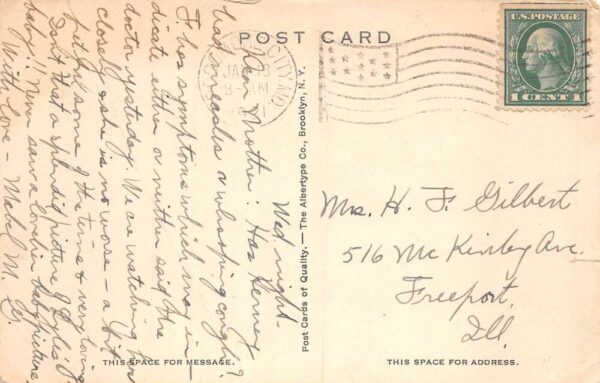 POST CARD
U.S. POSTAGE
1 CENT 1
CITY, MO.
JA
8 - AM
Wed. night -
Dear Mother : Has Harvey
had measles or whooping cough?
F. has symptoms which may in-
dicate either or neither said the
doctor yesterday. We are watching her
closely & she is no worse - a bit
fretful some of the time & very loving
Isn't that a splendid picture of
baby!! Never saw a lovelier baby picture.
With Love - Mabel M. G.
Post Cards of Quality. — The Albertype Co., Brooklyn, N. Y.
Mrs. H. F. Gilbert
516 Mc Kinley Ave.
Freeport,
Ill.
THIS SPACE FOR MESSAGE.
THIS SPACE FOR ADDRESS.